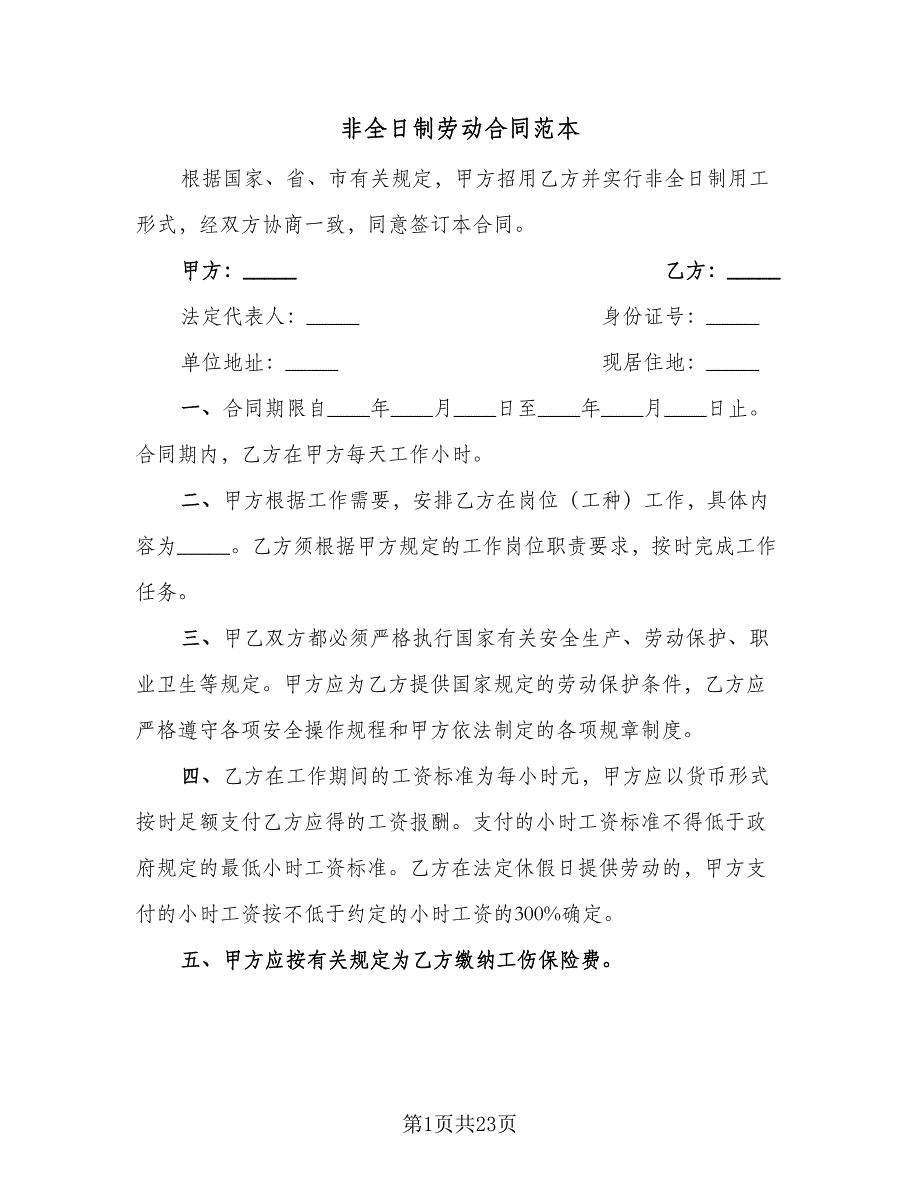 非全日制劳动合同范本
根据国家、省、市有关规定，甲方招用乙方并实行非全日制用工
形式，经双方协商一致，同意签订本合同。
甲方：_____ 乙方：_____
法定代表人：_____ 身份证号：_____
单位地址：_____ 现居住地：_____
一、合同期限自____年____月____日至____年____月____日止。
合同期内，乙方在甲方每天工作小时。
二、甲方根据工作需要，安排乙方在岗位（工种）工作，具体内
容为_____。乙方须根据甲方规定的工作岗位职责要求，按时完成工作
任务。
三、甲乙双方都必须严格执行国家有关安全生产、劳动保护、职
业卫生等规定。甲方应为乙方提供国家规定的劳动保护条件，乙方应
严格遵守各项安全操作规程和甲方依法制定的各项规章制度。
四、乙方在工作期间的工资标准为每小时元，甲方应以货币形式
按时足额支付乙方应得的工资报酬。支付的小时工资标准不得低于政
府规定的最低小时工资标准。乙方在法定休假日提供劳动的，甲方支
付的小时工资按不低于约定的小时工资的300%确定。
五、甲方应按有关规定为乙方缴纳工伤保险费。
第1页共23页